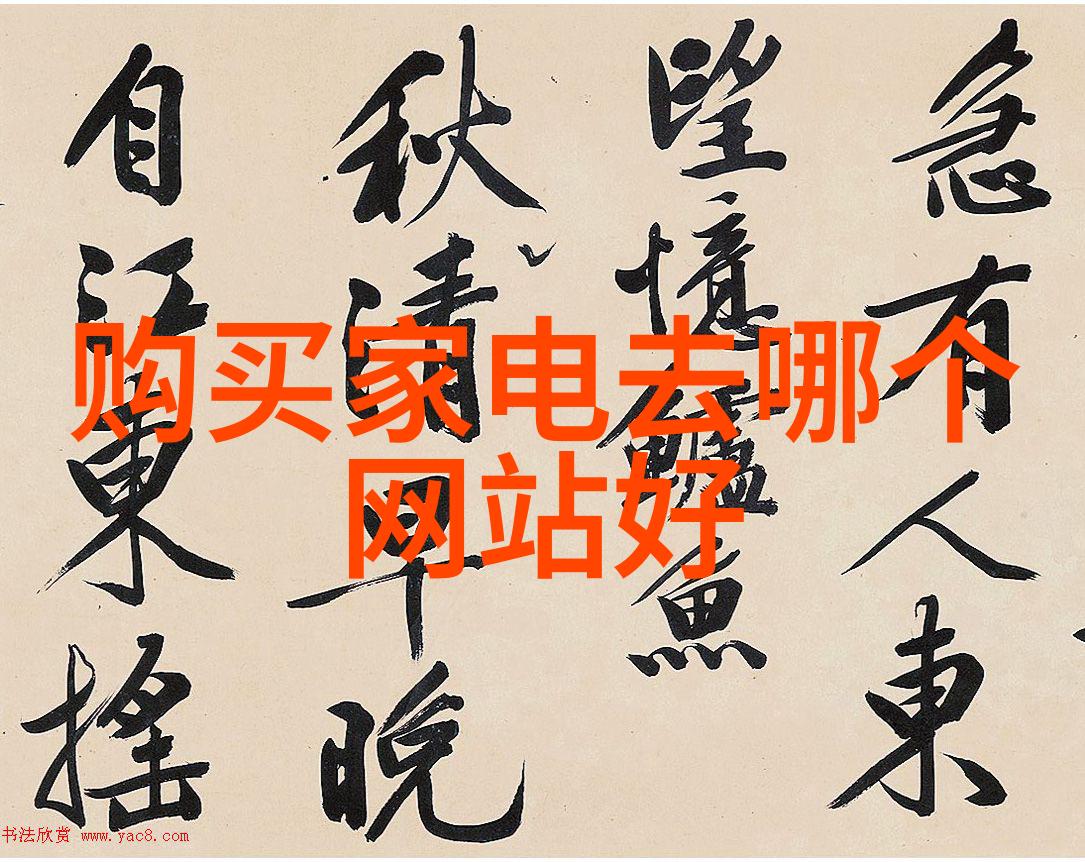 急有人東
望憶鱸魚
秋清早晚
自江東搖
购买家电去哪个
网站好
书法欣赏 www.yac8.com